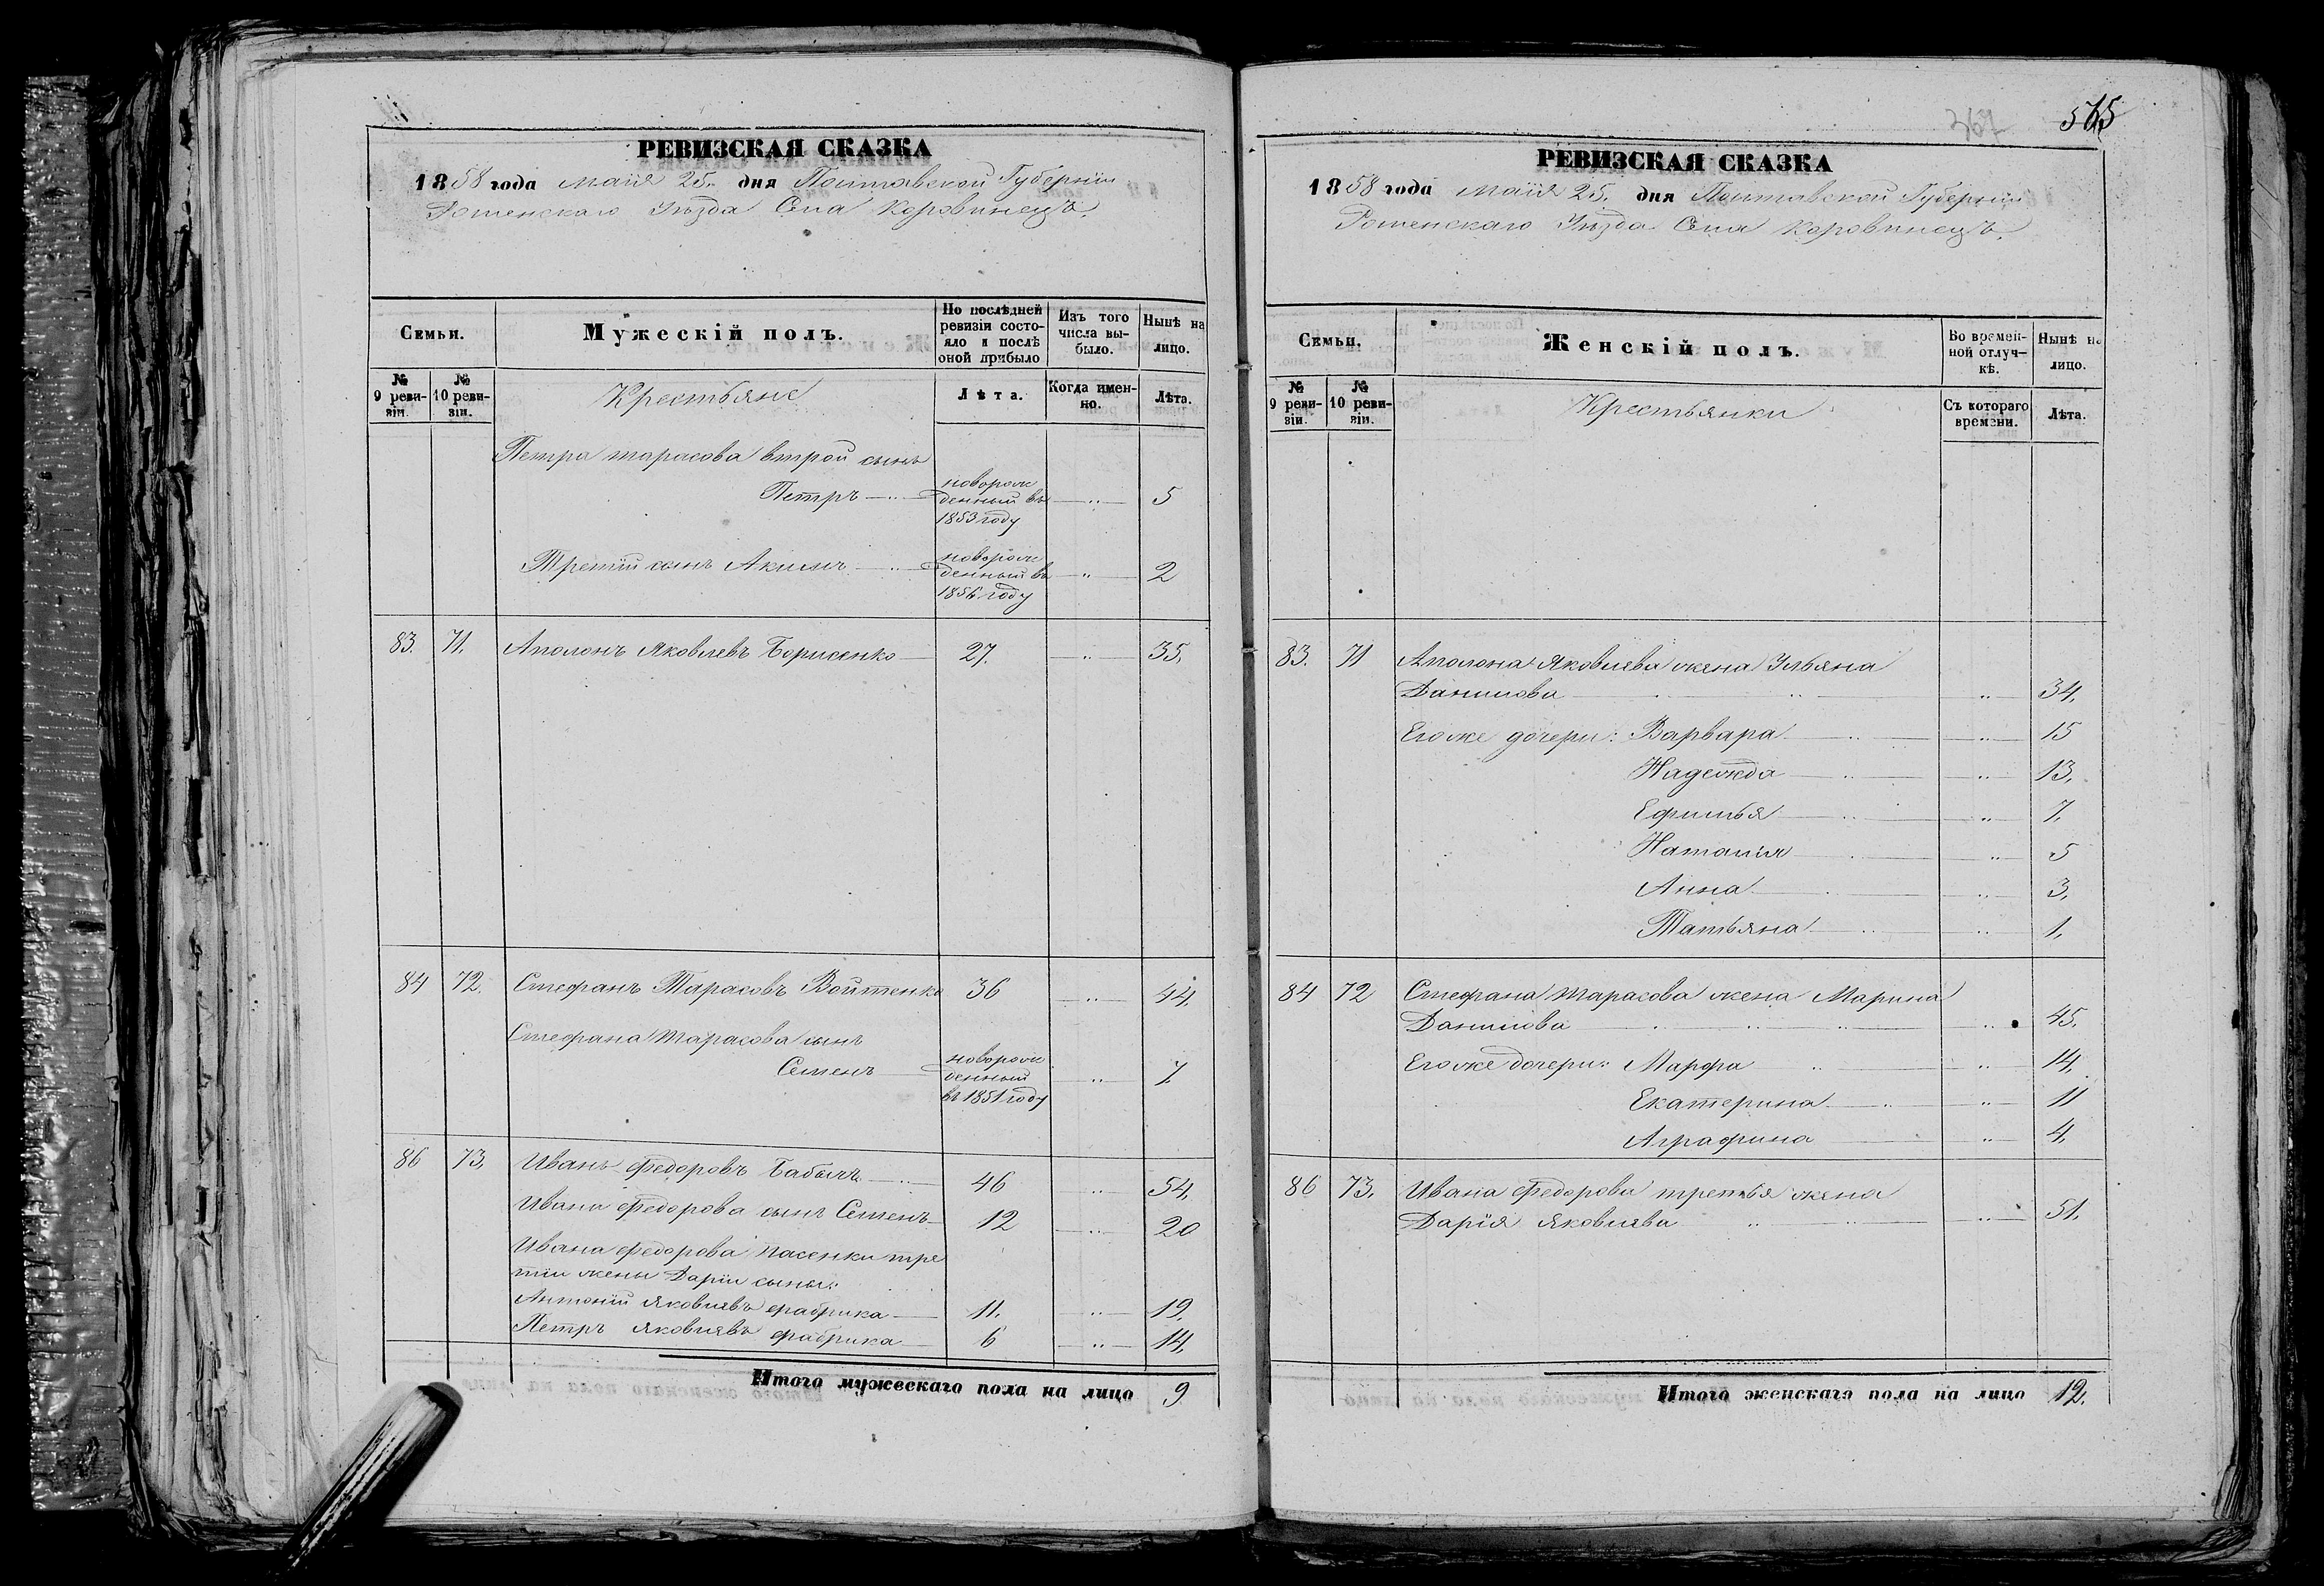 РЕВИЗСКАЯ СКАЗКА
1858 года маія 25. дня Полтавской Губерніи
Роменскаго Уѣзда Села Коровинецъ.
Семьи.
Мужескій полъ.
По послѣдней ревизіи состояло и послѣ оной прибыло
Изъ того числа выбыло.
Нынѣ на лицо.
№ 9 ревизіи.
№ 10 ревизіи.
Крестьяне
Лѣта.
Когда именно.
Лѣта.
Петра тарасова втрой сынъ
Петръ — новорожденный въ 1853 году — „ — 5
Третій сынъ Акимъ — новорожденный въ 1856 году — „ — 2
83. 71. Аполонъ Яковлевъ Борисенко — 27. — „ — 35.
84 72. Стефанъ Тарасовъ Войтенко 36 — „ — 44.
Стефана тарасова сынъ
Семенъ — новорожденный въ 1851 году — „ — 7
86 73. Иванъ федоровъ Бабычъ — 46 — „ — 54.
Ивана федорова сынъ Семенъ — 12 — „ — 20
Ивана федорова пасенки тре
тіи жены Даріи сыны:
Антоній Яковлевъ фабрика — 11. — „ — 19.
Петръ Яковлевъ фабрика — 6 — „ — 14.
Итого мужескаго пола на лицо 9
367 515
РЕВИЗСКАЯ СКАЗКА
1858 года маія 25. дня Полтавской Губерніи
Роменскаго Уѣзда Села Коровинецъ.
Семьи.
Женскій полъ.
Во временной отлучкѣ.
Нынѣ на лицо.
№ 9 ревизіи.
№ 10 ревизіи.
Крестьянки
Съ котораго времени.
Лѣта.
83. 71 Аполона Яковлева жена Ульяна
Данилова — „ — 34.
Егоже дочери: Варвара — „ — 15
Надежда — „ — 13.
Ефимья — „ — 7.
Наталія — „ — 5
Анна — „ — 3.
Татьяна — „ — 1.
84 72 Стефана тарасова жена Марина
Данилова — „ — 45.
Егоже дочери: Марфа — „ — 14.
Екатерина — „ — 11
Аграфина — „ — 4.
86 73. Ивана федорова третья жена
Дарія Яковлева — „ — 51.
Итого женскаго пола на лицо 12.